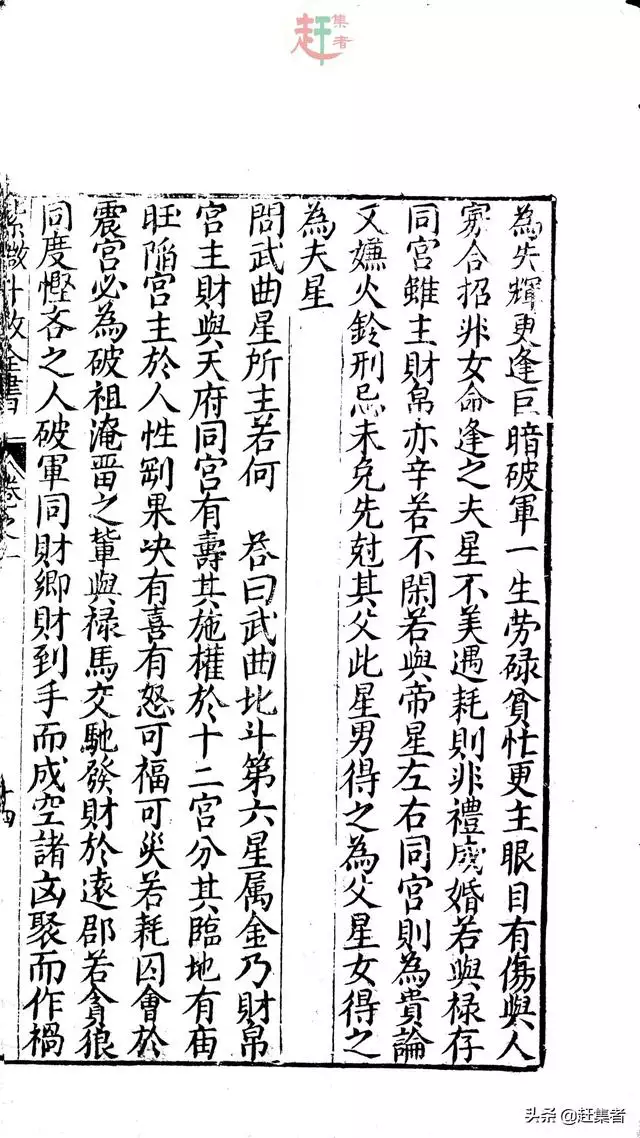 赶集者
為失輝更逢巨暗破軍一生勞碌貧忙更主眼目有傷與人
寡合招非女命逢之夫星不美遇耗則非禮成婚若與祿存
同宮雖主財帛亦辛苦不閑若與帝星左右同宮則為貴論
又嫌火鈴刑忌未免先尅其父此星男得之為父星女得之
為夫星
問武曲星所主若何 荅曰武曲北斗第六星属金乃財帛
宮主財與天府同宮有壽其施權於十二宮分其臨地有庙
旺陥宮主於人性剛果决有喜有怒可福可災若耗囚會於
震宮必為破祖淹畱之輩與禄馬交馳發財於遠郡若貪狼
同度慳吝之人破軍同財鄉財到手而成空諸凶聚而作禍
紫微斗数全書 卷之一 十四
头条 @赶集者